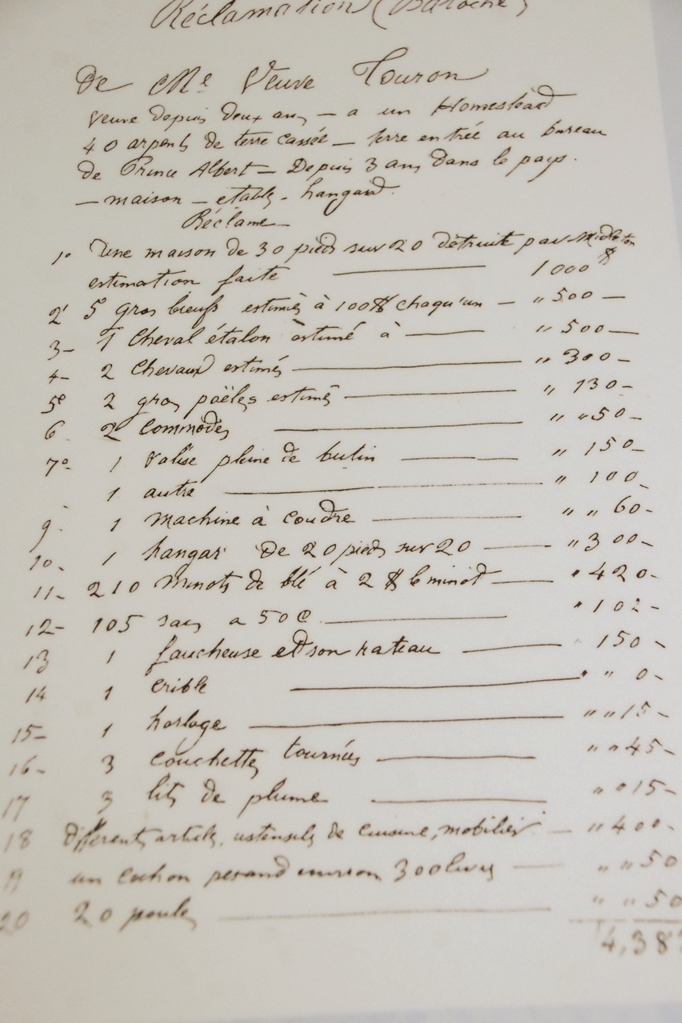 Réclamation (Batoche)
De Me Veuve Touron
veuve depuis deux ans — a un Homestead
40 arpents de terre cassée — terre entrée au bureau
de Prince Albert — Depuis 3 ans dans le pays.
— maison — etable - hangard.
Réclame —
1o Une maison de 30 pieds sur 20 détruite par Midleton
estimation faite — 1000 $
2o 5 gros bœufs estimés à 100$ chaqu'un — " 500 —
3 — 1 Cheval étalon estimé à — " 500 —
4 — 2 Chevaux estimés — " 300 —
5e 2 gros poëles estimés — " 130 —
6 2 Commodes — " " 50 —
7o 1 valise pleine de butin — " 150 —
1 autre — " 100 —
9 1 machine à coudre — " " 60 —
10 — 1 hangar de 20 pieds sur 20 — " 300 —
11 — 210 minots de blé à 2 $ le minot — " 420 —
12 — 105 sacs a 50 c — " 102 —
13 1 faucheuse et son rateau — 150 —
14 1 crible — " " 0 —
15 — 1 horloge — " " 15 —
16 — 3 couchettes tournées — " " 45 —
17 3 lits de plume — " " 15 —
18 différents articles, ustensiles de cuisine, mobilier — " 400 —
19 un cochon pesant environ 300 livres — " " 50
20 20 poules — " " 50
4,38